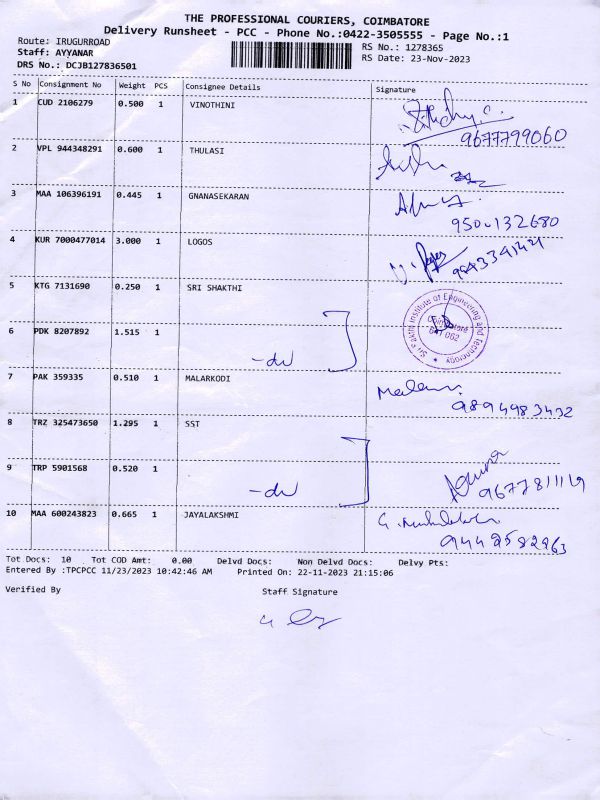 THE PROFESSIONAL COURIERS, COIMBATORE
Delivery Runsheet - PCC - Phone No.:0422-3505555 - Page No.:1
Route: IRUGURROAD
RS No.: 1278365
Staff: AYYANAR
RS Date: 23-Nov-2023
DRS No.: DCJB127836501
S No Consignment No Weight PCS Consignee Details Signature
1 CUD 2106279 0.500 1 VINOTHINI
9677799060
2 VPL 944348291 0.600 1 THULASI
3 MAA 106396191 0.445 1 GNANASEKARAN
9500132680
4 KUR 7000477014 3.000 1 LOGOS
5 KTG 7131690 0.250 1 SRI SHAKTHI
Sri Shakthi Institute of Engineering and Technology
Coimbatore
641 062
6 PDK 8207892 1.515 1
7 PAK 359335 0.510 1 MALARKODI
9894983432
8 TRZ 325473650 1.295 1 SST
9 TRP 5901568 0.520 1
9677811119
10 MAA 600243823 0.665 1 JAYALAKSHMI
Tot Docs: 10 Tot COD Amt: 0.00 Delvd Docs: Non Delvd Docs: Delvy Pts:
Entered By :TPCPCC 11/23/2023 10:42:46 AM Printed On: 22-11-2023 21:15:06
Verified By Staff Signature